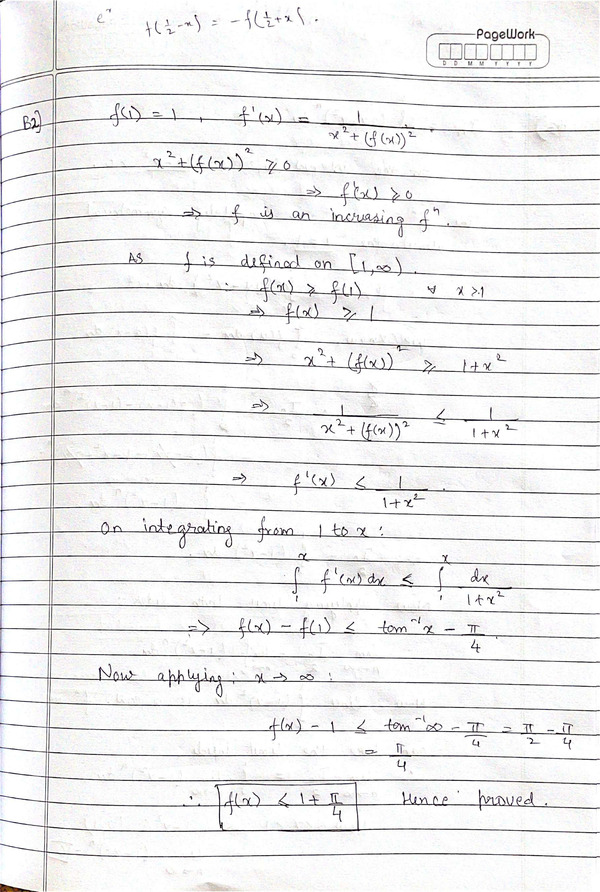 eˣ f(1/2-x) = -f(1/2+x).
PageWork
D D M M Y Y Y Y
B2] f(1) = 1, f'(x) = 1/(x²+(f(x))²).
x²+(f(x))² ≥ 0
⇒ f'(x) ≥ 0
⇒ f is an increasing fⁿ.
As f is defined on [1,∞).
∴ f(x) ≥ f(1) ∀ x ≥ 1
⇒ f(x) ≥ 1
⇒ x²+(f(x))² ≥ 1+x²
⇒ 1/(x²+(f(x))²) ≤ 1/(1+x²)
⇒ f'(x) ≤ 1/(1+x²).
On integrating from 1 to x:
∫₁ˣ f'(x) dx ≤ ∫₁ˣ dx/(1+x²)
⇒ f(x) - f(1) ≤ tan⁻¹x - π/4.
Now applying: x → ∞:
f(x) - 1 ≤ tan⁻¹∞ - π/4 = π/2 - π/4
= π/4
∴ f(x) ≤ 1+π/4 Hence proved.